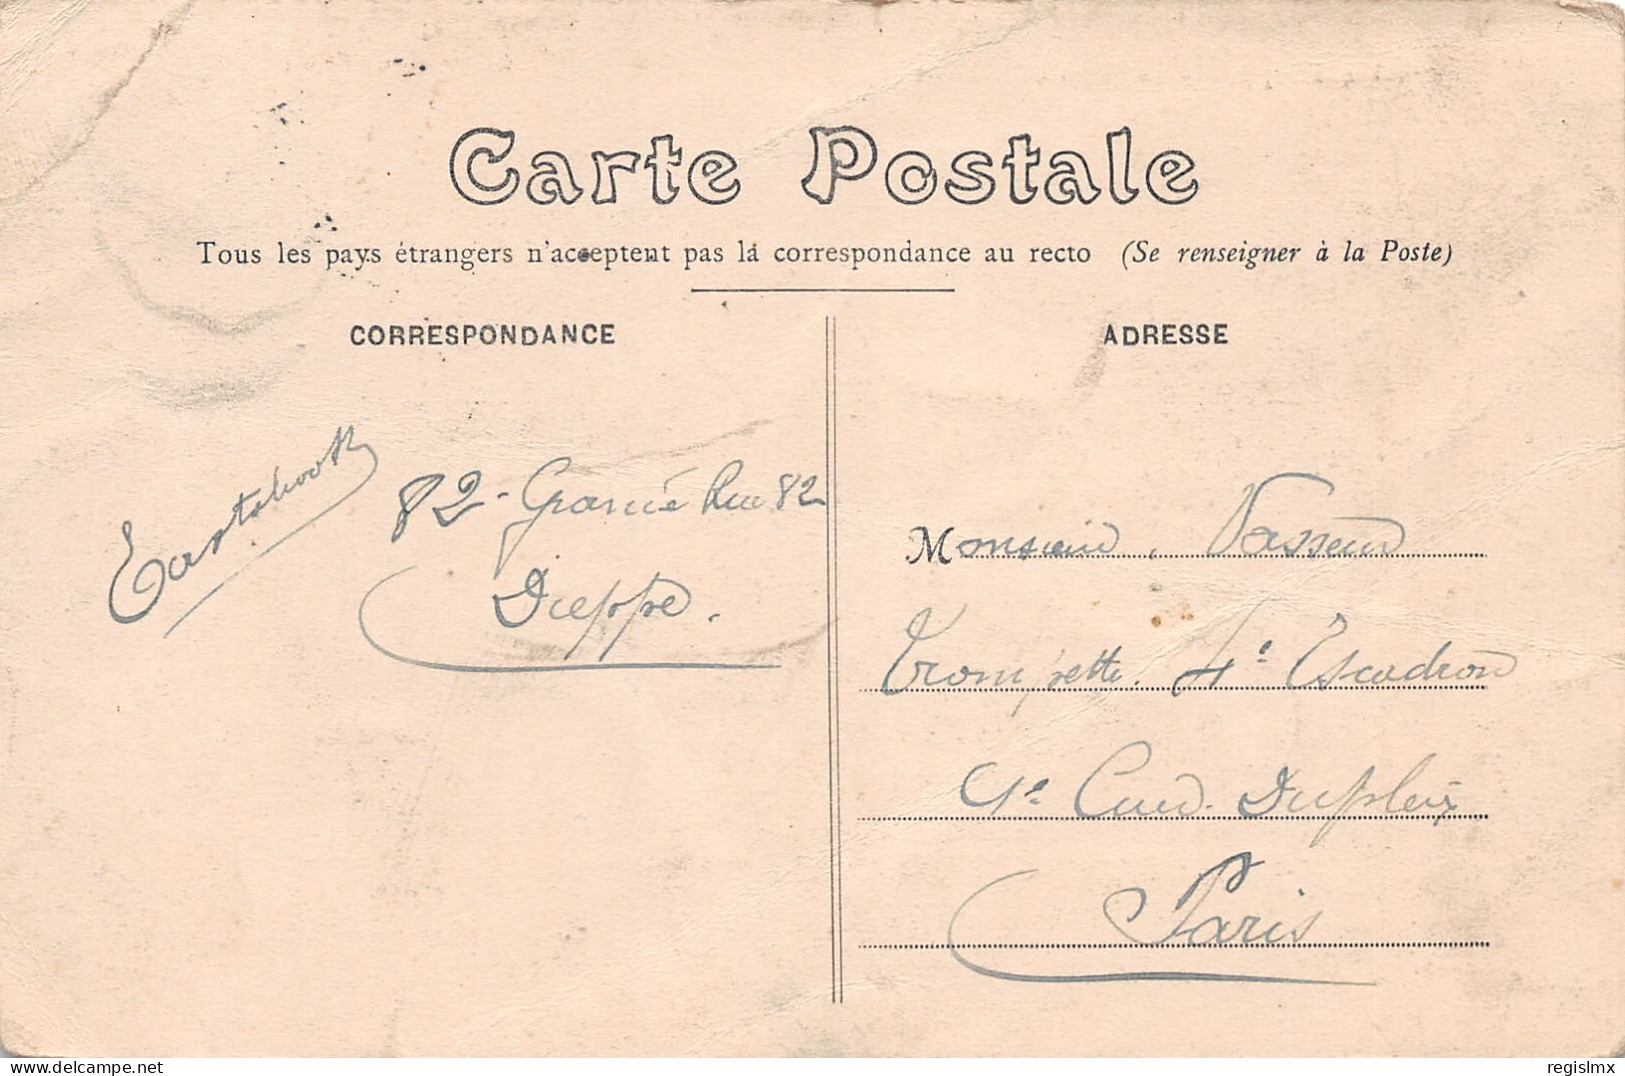 Carte Postale
Tous les pays étrangers n'acceptent pas la correspondance au recto (Se renseigner à la Poste)
CORRESPONDANCE
82 - Grande Rue 82
Dieppe.
ADRESSE
Monsieur. Vasseur
Trompette. 4e Escadron
Cuir. Dupleix
Paris
regislmx